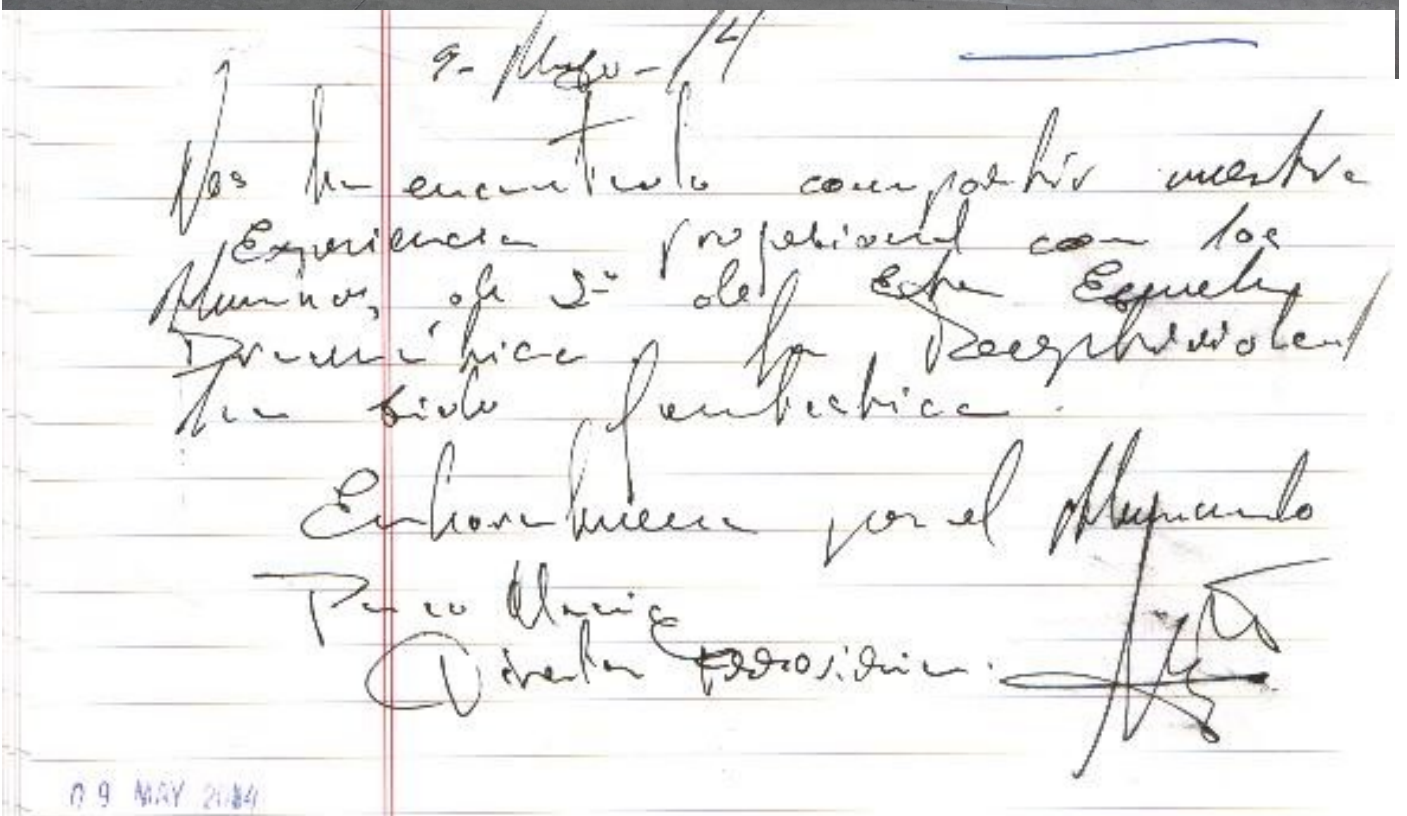 9- Mayo - 14
Nos ha encantado compartir nuestra
Experiencia profesional con los
Alumnos, de 2º de Esta Escuela
Dramática, la Receptividad
ha sido fantástica.
Enhorabuena por el Alumnado
Paco
Director
09 MAY 2014